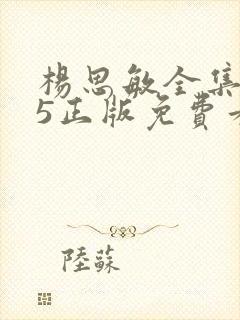 楊思敏全集
5正版免費
陸蘇